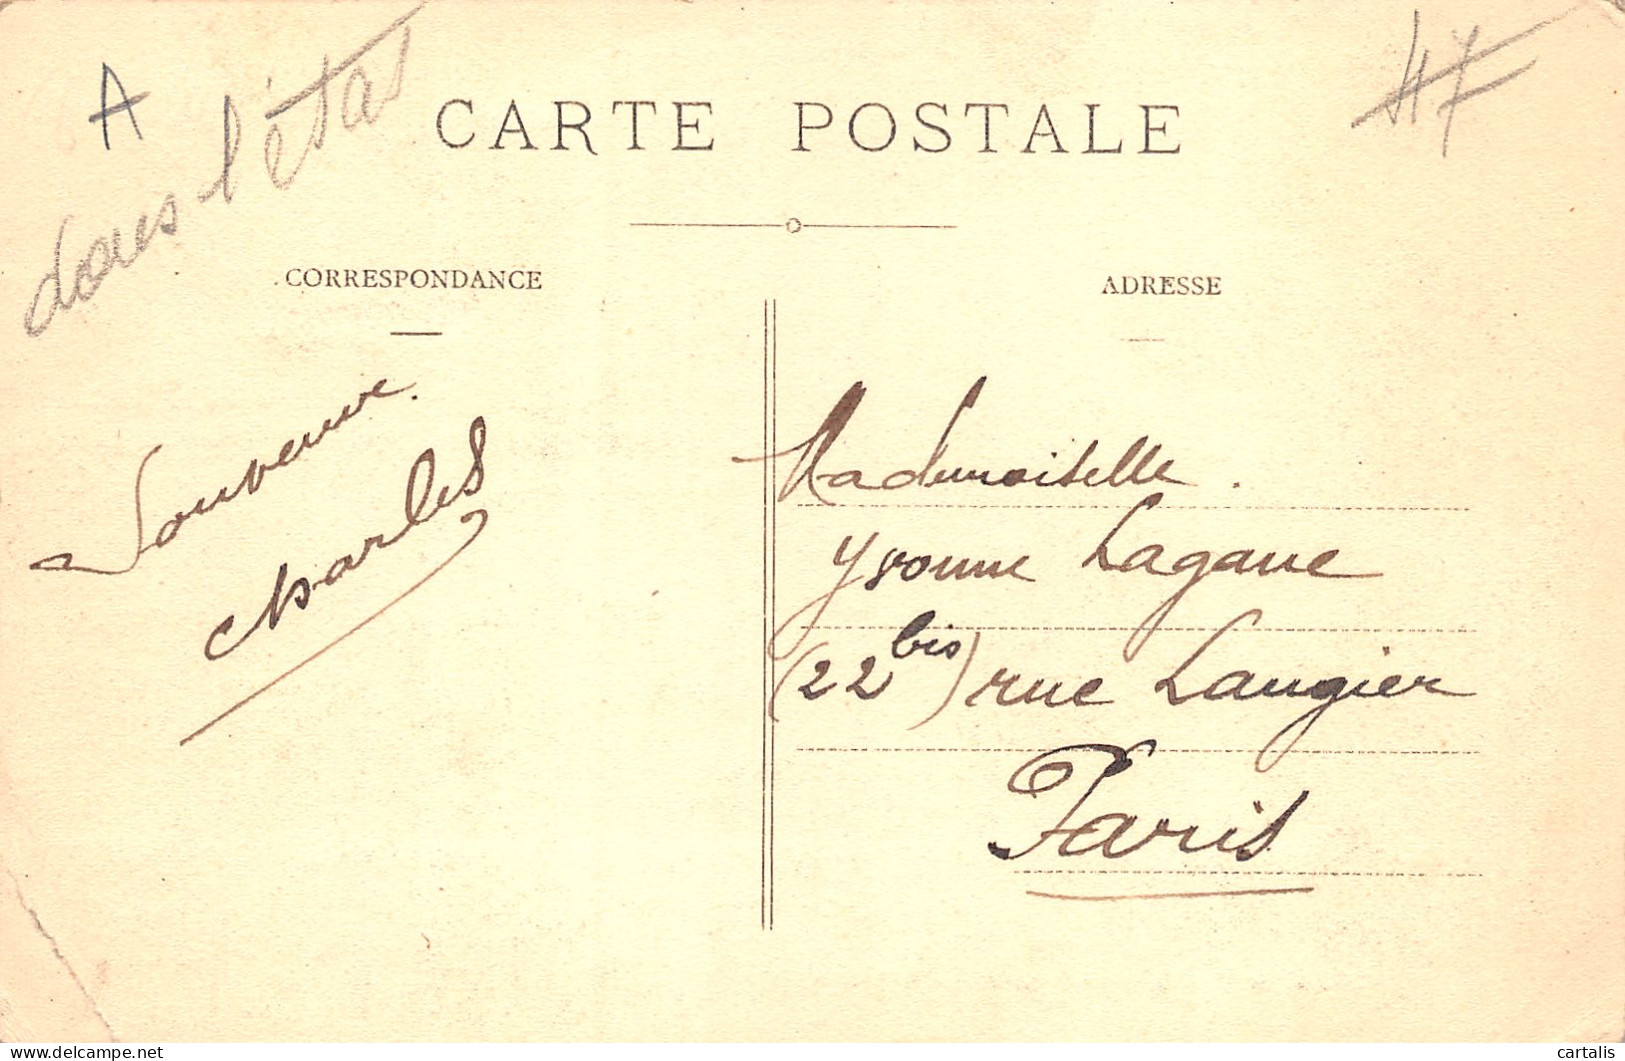 A
dans l'état
47
CARTE POSTALE
CORRESPONDANCE
ADRESSE
Souvenir.
Charles
Mademoiselle.
Yvonne Lagane
(22 bis) rue Laugier
Paris
delcampe.net
cartalis